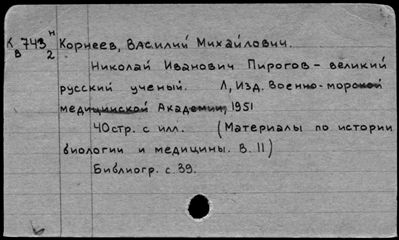 К 743 н
в 2
Корнеев, Василий Михайлович.
Николай Иванович Пирогов - великий
русский ученый. Л, Изд. Военно-морской
медицинской Академии, 1951
40стр. с илл. (Материалы по истории
биологии и медицины. В. 11)
Библиогр. с. 39.